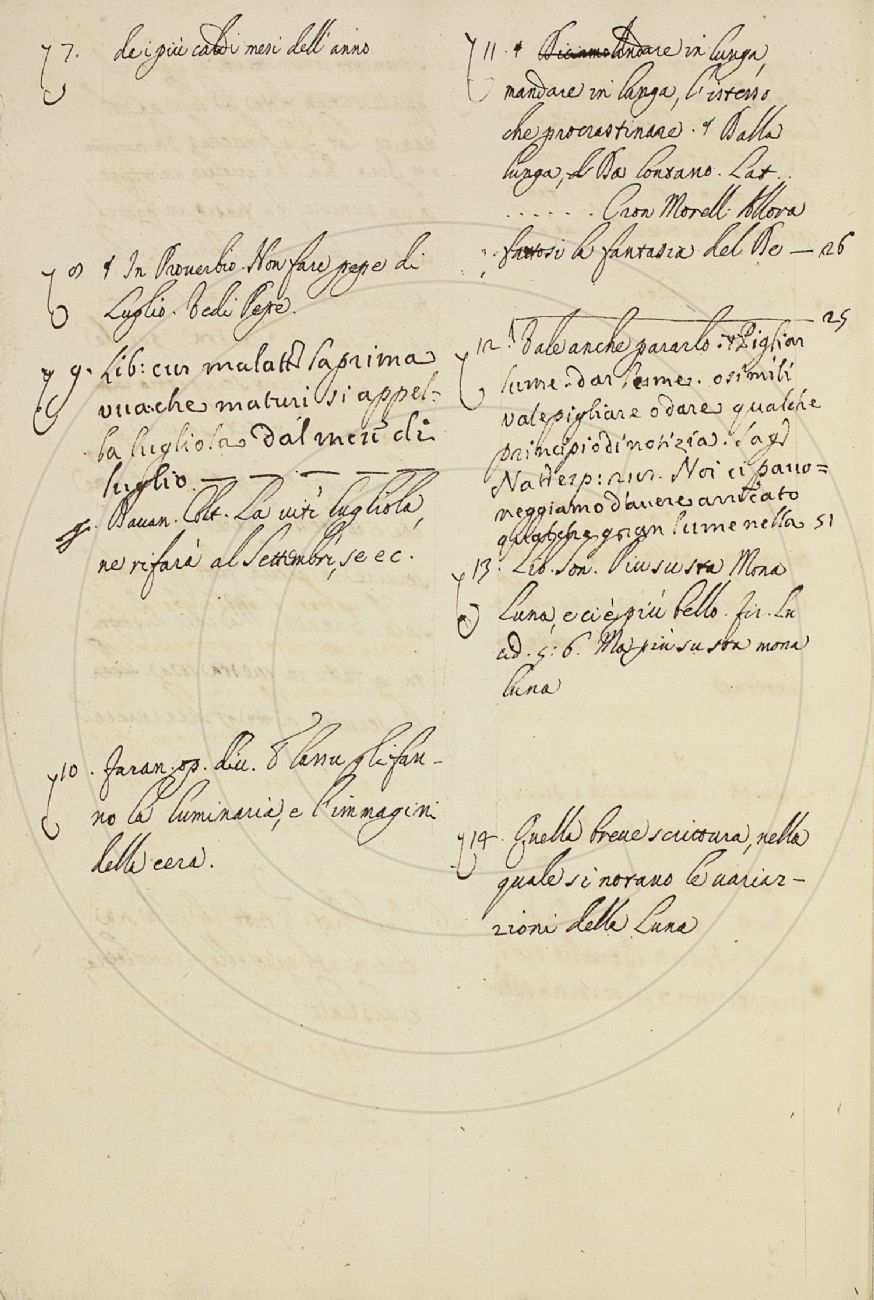 7. dei più caldi mesi dell' anno
8 ¶ In Proverbio. Non fare pepe di
Luglio. Vedi Pepe.
9. Lib: cur malatt. la prima
vua che maturi si appel=
la lugliola dal mese di
luglio.
g. Davan. Colt. La viti lugliola,
ne rifarà al Settembre, se ec.
10. Varch. op. div. E lassu gli fan-
no la luminaria, e l'immagini
della cera.
11. ¶ Diciamo Andare in lunga,
mandare in lunga, l'istesso
che procrastinare. ¶ Dalla
lunga, Da lontano. Lat.
. . . . . . Cron Morell. Allora
fattosi la fantasia del Re — 26
25
12. ¶ Vale anche pararlo. ¶ Pigliar
lume. dar lume. o simili
vale pigliare o dare qualche
principio di notizia. Sagg.
Nat. esp: 212. Noi ci pavo=
neggiamo d'avere arrecato
qualche gran lume nella 51
13. Lib. Son. Più su sta Mona
Luna, e ci è più bello. Fir. Lu
cid. 5: 6. Ma più su sta mona
luna
14. Quella breve scrittura, nella
quale si notano le variaz-
zioni della Luna